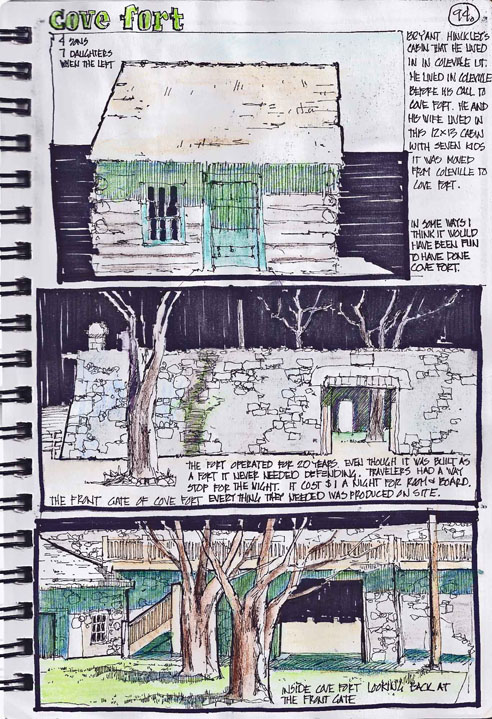 cove fort
94.
4 SONS
7 DAUGHTERS
WHEN THE LEFT
BRYANT HINCKLEY'S
CABIN THAT HE LIVED
IN IN COLEVILLE UT.
HE LIVED IN COLEVILLE
BEFORE HIS CALL TO
COVE FORT. HE AND
HIS WIFE LIVED IN
THIS 12X13 CABIN
WITH SEVEN KIDS
IT WAS MOVED
FROM COLEVILLE TO
COVE FORT.
IN SOME WAYS I
THINK IT WOULD
HAVE BEEN FUN
TO HAVE DONE
COVE FORT.
THE FORT OPERATED FOR 20 YEARS. EVEN THOUGH IT WAS BUILT AS
A FORT IT NEVER NEEDED DEFENDING. TRAVELERS HAD A WAY
STOP FOR THE NIGHT. IT COST $1 A NIGHT FOR ROOM & BOARD.
EVERYTHING THEY NEEDED WAS PRODUCED ON SITE.
THE FRONT GATE OF COVE FORT
INSIDE COVE FORT LOOKING BACK AT
THE FRONT GATE